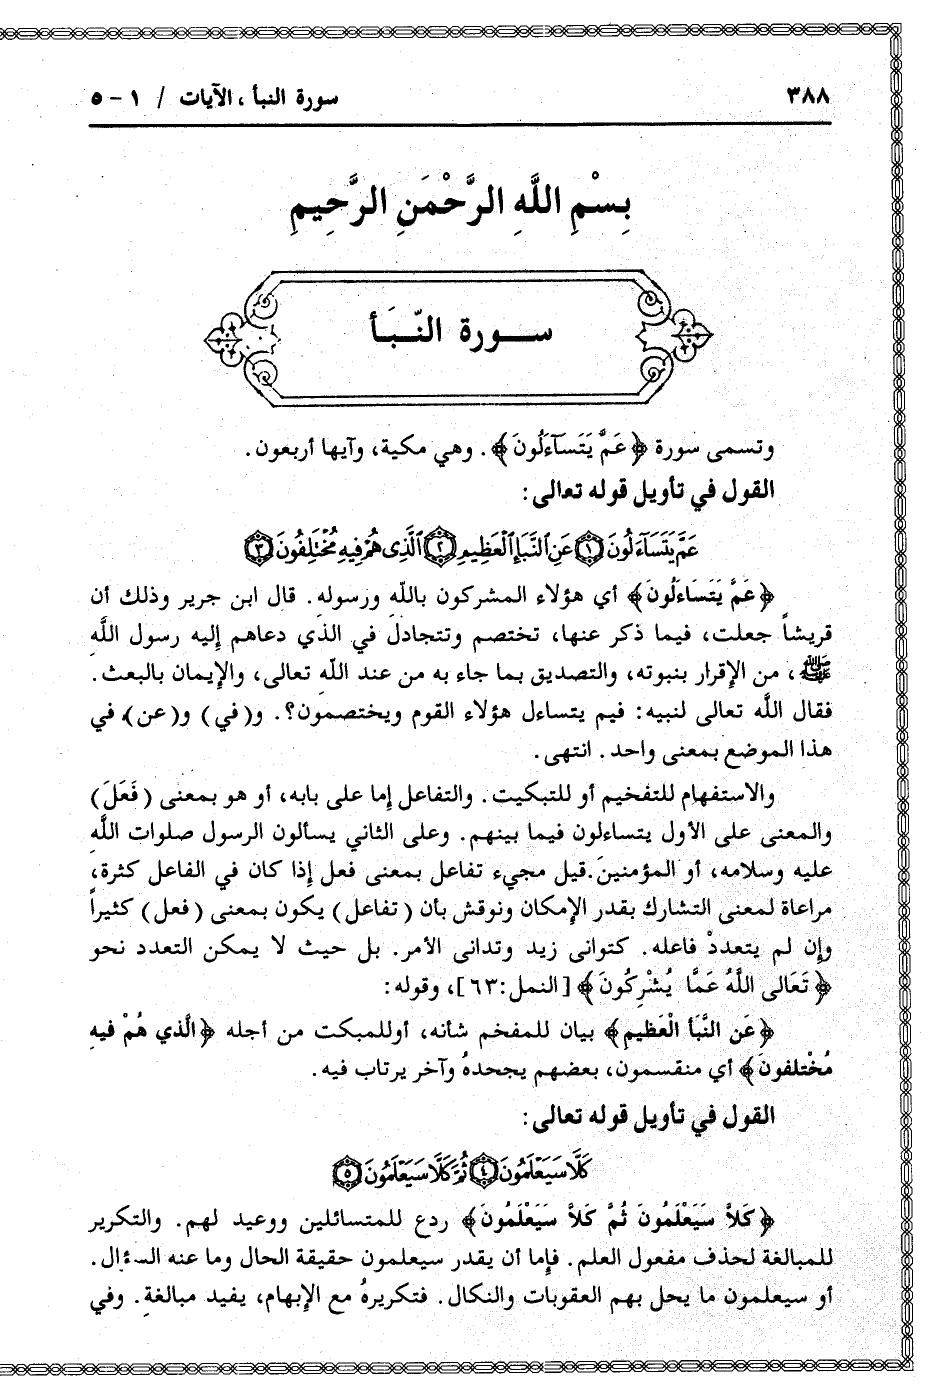 ٣٨٨
سورة النبأ ، الآيات / ١ - ٥
بِسْمِ اللَّهِ الرَّحْمَنِ الرَّحِيمِ
ســورة النّبَأ
وتسمى سورة ﴿عَمَّ يَتَسَآءَلُونَ﴾. وهي مكية، وآيها أربعون.
القول في تأويل قوله تعالى:
عَمَّ يَتَسَآءَلُونَ ﴿١﴾ عَنِ ٱلنَّبَإِ ٱلْعَظِيمِ ﴿٢﴾ ٱلَّذِى هُمْ فِيهِ مُخْتَلِفُونَ ﴿٣﴾
﴿عَمَّ يَتَسَاءَلُونَ﴾ أي هؤلاء المشركون بالله ورسوله. قال ابن جرير وذلك أن
قريشاً جعلت، فيما ذكر عنها، تختصم وتتجادل في الذي دعاهم إليه رسول اللَّه
ﷺ، من الإقرار بنبوته، والتصديق بما جاء به من عند اللَّه تعالى، والإيمان بالبعث.
فقال اللَّه تعالى لنبيه: فيم يتساءل هؤلاء القوم ويختصمون؟. و(في) و(عن)، في
هذا الموضع بمعنى واحد. انتهى.
والاستفهام للتفخيم أو للتبكيت. والتفاعل إما على بابه، أو هو بمعنى (فَعَلَ)
والمعنى على الأول يتساءلون فيما بينهم. وعلى الثاني يسألون الرسول صلوات اللَّه
عليه وسلامه، أو المؤمنين.قيل مجيء تفاعل بمعنى فعل إذا كان في الفاعل كثرة،
مراعاة لمعنى التشارك بقدر الإمكان ونوقش بأن (تفاعل) يكون بمعنى (فعل) كثيراً
وإن لم يتعددْ فاعله. كتوانى زيد وتدانى الأمر. بل حيث لا يمكن التعدد نحو
﴿تَعَالى اللَّهُ عَمَّا يُشْرِكُونَ﴾ [النمل:٦٣]، وقوله:
﴿عَن النَّبَأ الْعَظِيم﴾ بيان للمفخم شأنه، أوللمبكت من أجله ﴿الَّذي هُمْ فيه
مُخْتلفونَ﴾ أي منقسمون، بعضهم يجحدهُ وآخر يرتاب فيه.
القول في تأويل قوله تعالى:
كَلَّا سَيَعْلَمُونَ ﴿٤﴾ ثُمَّ كَلَّا سَيَعْلَمُونَ ﴿٥﴾
﴿كَلاَّ سَيَعْلَمُونَ ثُمَّ كَلاَّ سَيَعْلَمُونَ﴾ ردع للمتسائلين ووعيد لهم. والتكرير
للمبالغة لحذف مفعول العلم. فإما أن يقدر سيعلمون حقيقة الحال وما عنه السؤال.
أو سيعلمون ما يحل بهم العقوبات والنكال. فتكريرهُ مع الإبهام، يفيد مبالغة. وفي